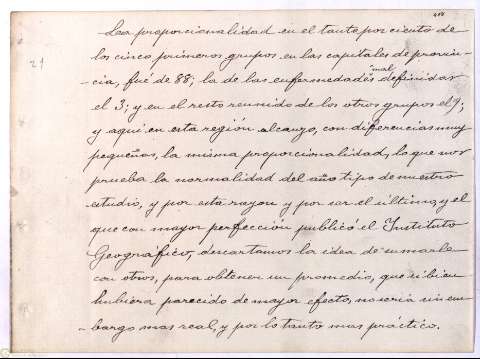 La proporcionalidad en el tanto por ciento de
los cinco primeros grupos, en las capitales de provin-
-cia, fué de 88; la de las enfermedades mal definidas
el 3; y en el resto reunido de los otros grupos el 9;
y aquí en esta región alcanzo, con diferencias muy
pequeñas, la misma proporcionalidad, lo que nos
prueba la normalidad del año tipo de nuestro
estudio, y por esta razon y por ser el último, y el
que con mayor perfección publicó el Instituto
Geográfico, descartamos la idea de sumarle
con otros, para obtener un promedio, que si bien
hubiera parecido de mayor efecto, no seria sin em-
-bargo mas real, y por lo tanto mas práctico.
21